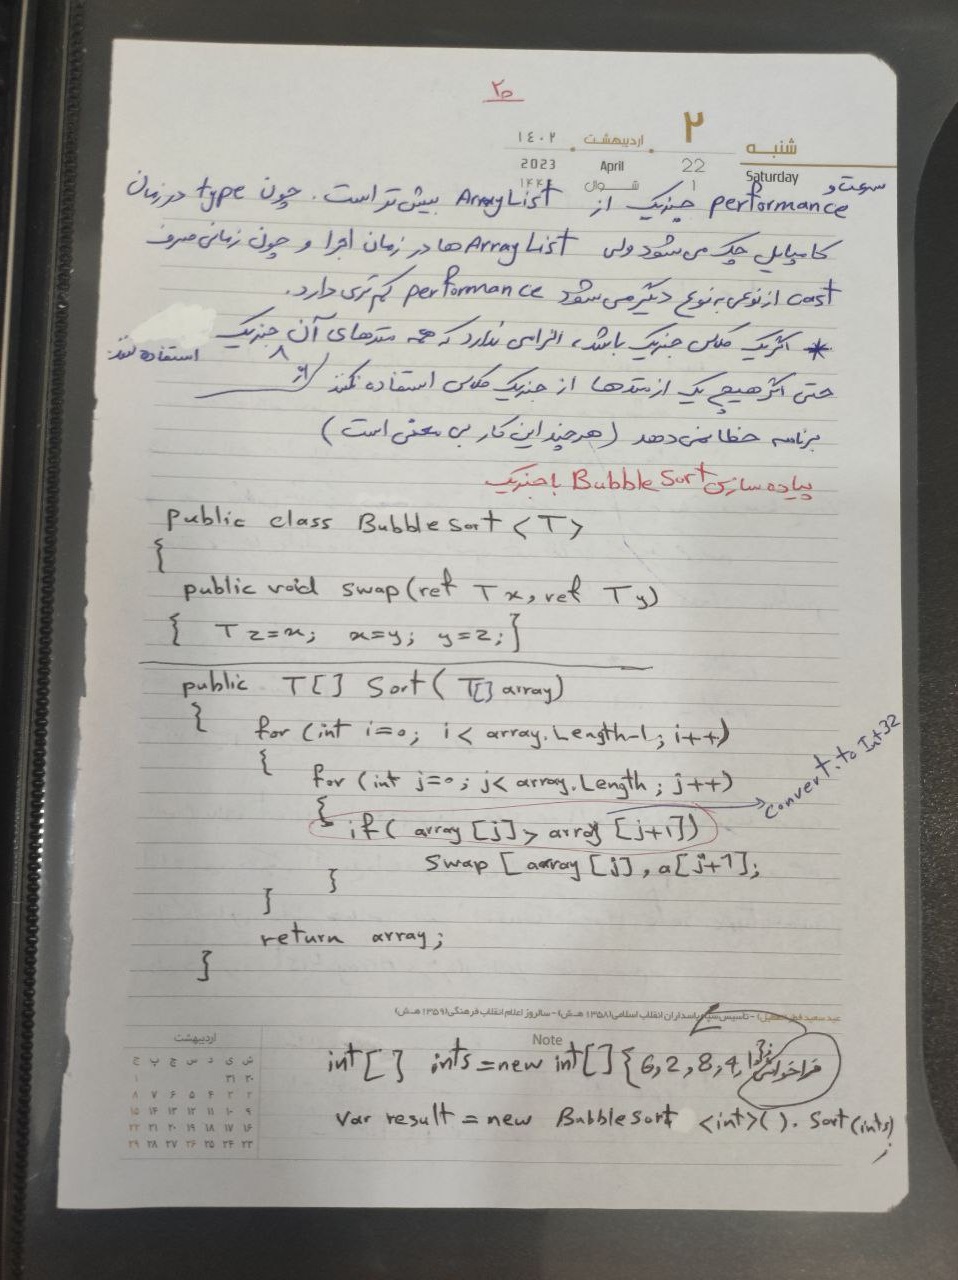 ۲۰
شنبه ۲ اردیبهشت ۱٤۰۲
Saturday 22 April 2023
۱ شوال
سرعت و performance جنریک از ArrayList بیش تر است. چون type در زمان
کامپایل چک می شود ولی ArrayList ها در زمان اجرا و چون زمانی صرف
cast از نوعی به نوع دیگر می شود performance کم تری دارد.
* اگر یک کلاس جنریک باشد، الزامی ندارد که همه متدهای آن جنریک استفاده کنند
حتی اگر هیچ یک از متدها از جنریک کلاس استفاده نکنند
برنامه خطا نمی دهد (هرچند این کار بی معنی است)
پیاده سازی Bubble Sort با جنریک
public class BubbleSort <T>
{
public void swap(ref T x, ref T y)
{ T z=x; x=y; y=z;}
public T[] Sort( T[] array)
{
for (int i=0; i< array.Length-1; i++)
{
for (int j=0; j< array.Length; j++)
{
if( array [j]> array [j+1])
convert.to Int32
Swap [ aaray [j], a[j+1];
}
}
return array;
}
عید سعید فطر (تعطیل) - تأسیس سپاه پاسداران انقلاب اسلامی (۱۳۵۸ هـ.ش) - سالروز اعلام انقلاب فرهنگی (۱۳۵۹ هـ.ش)
اردیبهشت
ش ی د س چ پ ج
۳۰ ۳۱ ۱
۲ ۳ ۴ ۵ ۶ ۷ ۸
۹ ۱۰ ۱۱ ۱۲ ۱۳ ۱۴ ۱۵
۱۶ ۱۷ ۱۸ ۱۹ ۲۰ ۲۱ ۲۲
۲۳ ۲۴ ۲۵ ۲۶ ۲۷ ۲۸ ۲۹
Note
فراخوانی
int[] ints = new int[] {6,2,8,4,1};
var result = new BubbleSort <int>(). Sort(ints)
;